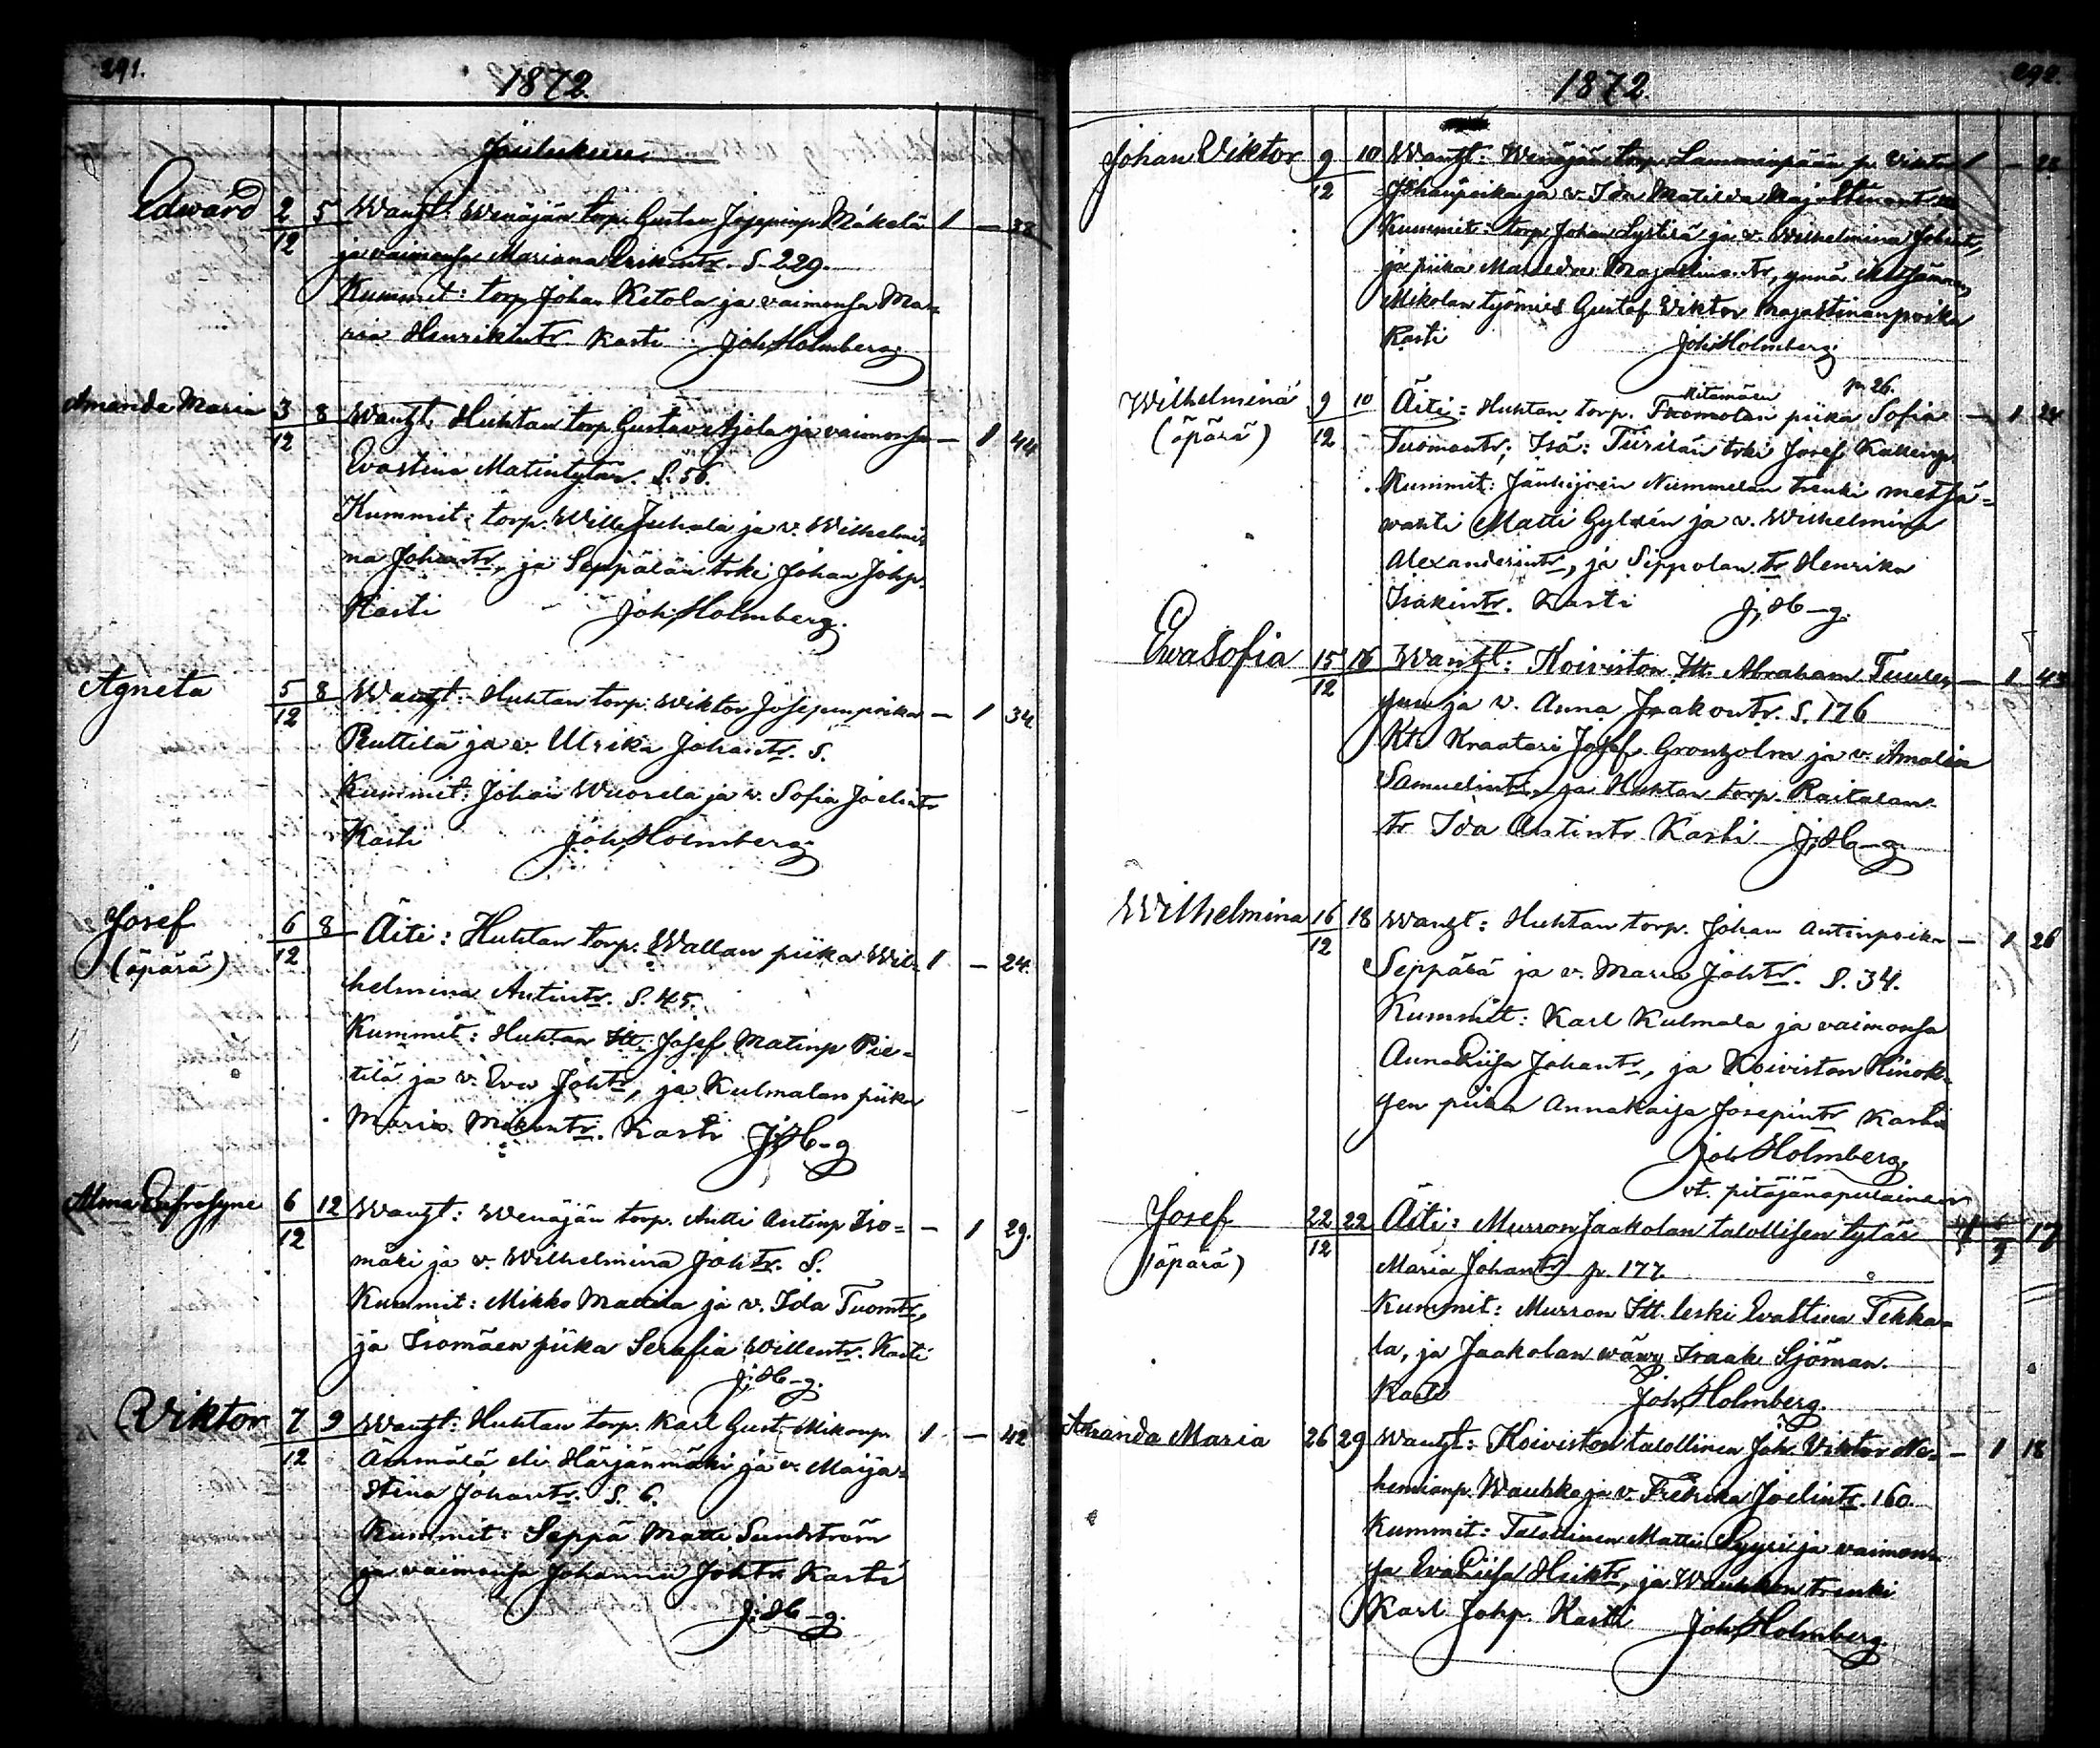 291.
1872.
Joulukuu.
Edward 2/12 5 Wanht: Wenäjän torp. Gustav Josepinp. Mäkelä 1 — 38
ja vaimonsa Mariana Erikintr. S. 229.
Kummit: torp. Johan Ketola ja vaimonsa Ma-
ria Henrikintr. Kasti Joh. Holmberg.
Amanda Maria 3/12 8 Wanht. Huhtan torp. Gustav Ajola ja vaimonsa — 1 44
Evastina Matintytär. S. 56.
Kummit: torp. Wille Juhala ja v. Wilhelmi-
na Johantr., ja Seppälän trki Johan Johp.
Kasti Joh. Holmberg.
Agneta 5/12 8 Wanht: Huhtan torp. Wiktor Josepinpoika — 1 34
Ruttilä ja v. Ulrika Johantr. S.
Kummit: Johan Wuorela ja v. Sofia Joelintr
Kasti Joh. Holmberg.
Josef 6/12 8 Äiti: Huhtan torp. Wallan piika Wil- 1 — 24.
(äpärä)
helmina Antintr. S. 45.
Kummit: Huhtan Itt. Josef Matinp Pie-
tilä ja v. Eva Johtr, ja Kulmalan piika
Maria Mikintr. Kasti J. H-g
Alma Eufrosyne 6/12 12 Wanht: Wenäjän torp. Antti Antinp Iso- — 1 29.
mäki ja v. Wilhelmina Johtr. S.
Kummit: Mikko Mattila ja v. Ida Tuomtr,
ja Isomäen piika Serafia Willentr. Kasti
J. H-g.
Viktor 7/12 9 Wanht: Huhtan torp. Karl Gust. Mikonp. 1 — 42
Ämmälä eli Härjänmäki ja v. Maija-
stina Johantr. S. 6.
Kummit: Seppä Matti Sundström
ja vaimonsa Johanna Johtr Kasti
J. H-g.
292.
1872.
Johan Viktor 9/12 10 Wanht: Wenäjän torp. Lamminpään p. Viktor 1 — 22
Johanpoika ja v. Ida Matilda Majastinantr.
Kummit: torp. Johan Lystilä ja v. Wilhelmina Johtr,
ja piika Matilda Majastinantr,
Mikolan työmies Gustaf Viktor Majastinanpoika
Kasti Joh. Holmberg.
Kitamäen p. 26.
Wilhelmina 9/12 10 Äiti: Huhtan torp. Tuomolan piika Sofia — 1 24
(äpärä)
Tuomantr; Isä: Tiirilän trki Josef Kallenp.
Kummit: Jänhijoen Nummelan trenki metsä-
wahti Matti Gyldén ja v. Wilhelmina
Alexanderintr, ja Sippolan tr Henrika
Isakintr. Kasti J. H-g.
Eva Sofia 15/12 16 Wanht: Koiviston Itt. Abraham — 1 43
ja v. Anna Jaakontr. S. 176
Kt. Kraatari Josef Gronholm ja v. Amalia
Samuelintr, ja Huhtan torp. Raitalan
tr Ida Antintr Kasti J. H-g.
Wilhelmina 16/12 18 Wanht: Huhtan torp. Johan Antinpoika — 1 26
Seppälä ja v. Maria Johtr. S. 34.
Kummit: Karl Kulmala ja vaimonsa
AnnaLiisa Johantr, ja Koiviston
piika Annakaisa Josepintr Kasti
Joh Holmberg.
vt. pitäjänapulainen
Josef 22/12 22 Äiti: Murron Jaakolan talollisen tytär 1 17
(äpärä)
Maria Johantr p. 177.
Kummit: Murron Itt. leski Evastina Pekka-
la, ja Jaakolan wäwy Isaak Sjöman.
Kasti Joh. Holmberg.
Amanda Maria 26 29 Wanht: Koiviston talollinen Joh. Viktor Ne- — 1 18
hemianp. Wauhko ja v. Fredrika Joelintr. 160.
Kummit: Talollinen Matti Syyri ja vaimon-
sa EvaLiisa Heiktr, ja Wauhkon trenki
Karl Johp. Kasti Joh. Holmberg.